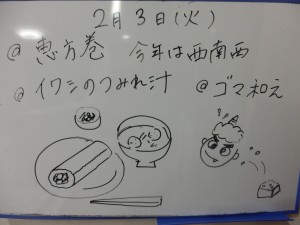 2月3日(火)
@ 恵方巻 今年は西南西
@ イワシのつみれ汁 @ ゴマ和え